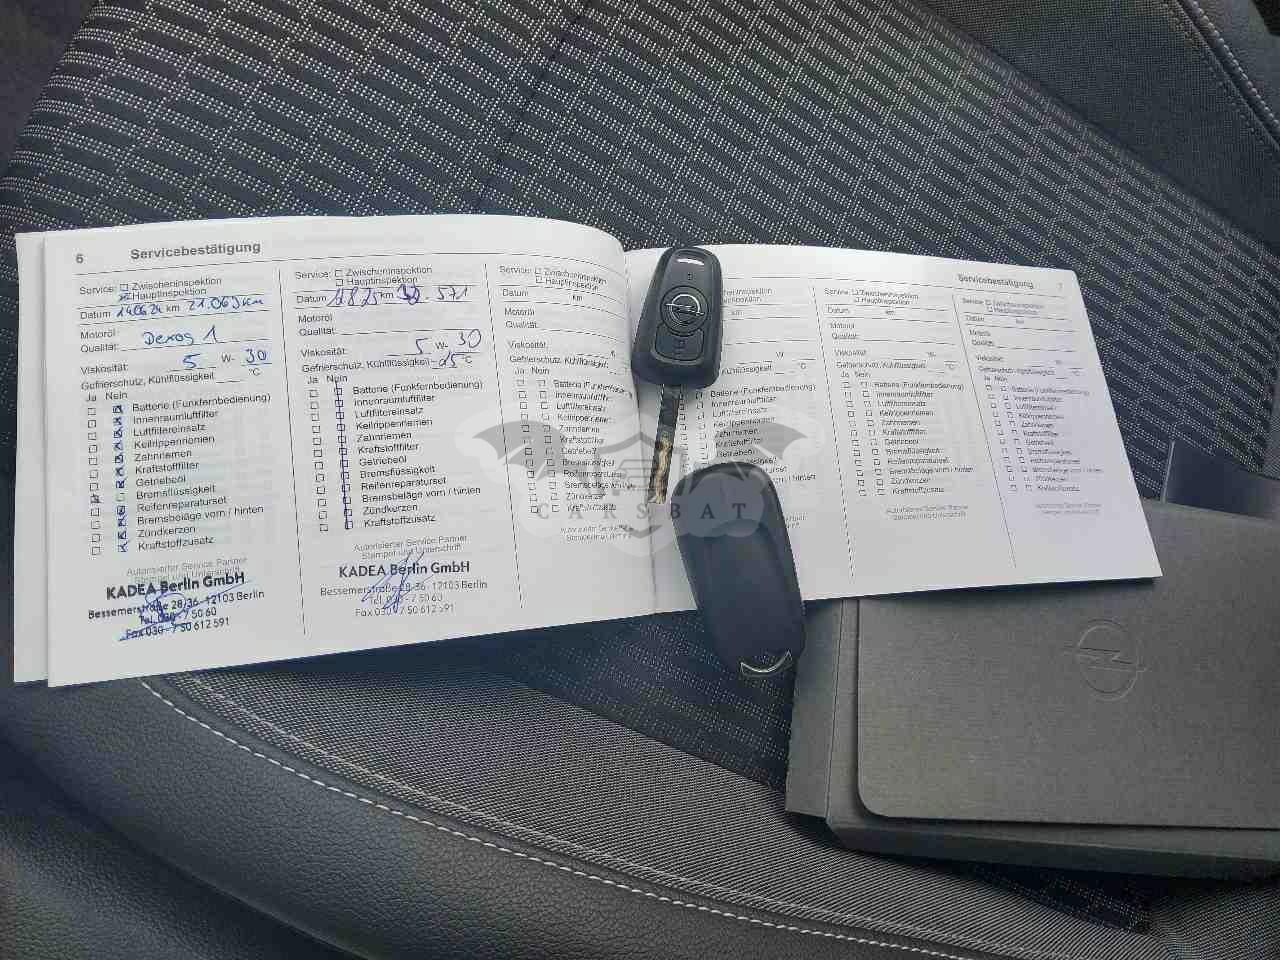 6 Servicebestätigung
Service: Zwischeninspektion
Hauptinspektion
Datum 140624 km 21.069km
Motoröl
Qualität: Dexos 1
Viskosität: 5 W- 30
Gefrierschutz, Kühlflüssigkeit °C
Ja Nein
Batterie (Funkfernbedienung)
Innenraumluftfilter
Luftfiltereinsatz
Keilrippenriemen
Zahnriemen
Kraftstofffilter
Getriebeöl
Bremsflüssigkeit
Reifenreparaturset
Bremsbeläge vorn / hinten
Zündkerzen
Kraftstoffzusatz
Autorisierter Service Partner
Stempel und Unterschrift
KADEA Berlin GmbH
Bessemerstraße 28/36 · 12103 Berlin
Tel. 030 - 7 50 60
Fax 030 - 7 50 612 591
Service: Zwischeninspektion
Hauptinspektion
Datum km .571
Motoröl
Qualität:
Viskosität: 5 W- 30
Gefrierschutz, Kühlflüssigkeit -25 °C
Ja Nein
Batterie (Funkfernbedienung)
Innenraumluftfilter
Luftfiltereinsatz
Keilrippenriemen
Zahnriemen
Kraftstofffilter
Getriebeöl
Bremsflüssigkeit
Reifenreparaturset
Bremsbeläge vorn / hinten
Zündkerzen
Kraftstoffzusatz
Autorisierter Service Partner
Stempel und Unterschrift
KADEA Berlin GmbH
Bessemerstraße 28-36 · 12103 Berlin
Tel. 030 - 7 50 60
Fax 030 - 7 50 612 591
Service: Zwischeninspektion
Hauptinspektion
Datum km
Motoröl
Qualität:
Viskosität:
Gefrierschutz, Kühlflüssigkeit
Ja Nein
Batterie
Innenraumluftfilter
Luftfiltereinsatz
Keilrippenriemen
Zahnriemen
Kraftstofffilter
Getriebeöl
Bremsflüssigkeit
Reifenreparaturset
Zündkerzen
CARSBAT
Servicebestätigung 7
km
W-
Kühlflüssigkeit °C
Batterie (Funkfernbedienung)
Innenraumluftfilter
Luftfiltereinsatz
Keilrippenriemen
Zahnriemen
Service: Zwischeninspektion
Hauptinspektion
Datum km
Motoröl
Qualität:
Viskosität: W-
Gefrierschutz, Kühlflüssigkeit °C
Ja Nein
Batterie (Funkfernbedienung)
Innenraumluftfilter
Luftfiltereinsatz
Keilrippenriemen
Zahnriemen
Kraftstofffilter
Getriebeöl
Bremsflüssigkeit
Reifenreparaturset
Bremsbeläge vorn / hinten
Zündkerzen
Kraftstoffzusatz
Autorisierter Service Partner
Stempel und Unterschrift
Service: Zwischeninspektion
Hauptinspektion
Datum km
Motoröl
Qualität:
Viskosität: W-
Gefrierschutz, Kühlflüssigkeit °C
Ja Nein
Batterie (Funkfernbedienung)
Innenraumluftfilter
Luftfiltereinsatz
Keilrippenriemen
Zahnriemen
Kraftstofffilter
Getriebeöl
Bremsflüssigkeit
Reifenreparaturset
Bremsbeläge vorn / hinten
Zündkerzen
Kraftstoffzusatz
Autorisierter Service Partner
Stempel und Unterschrift